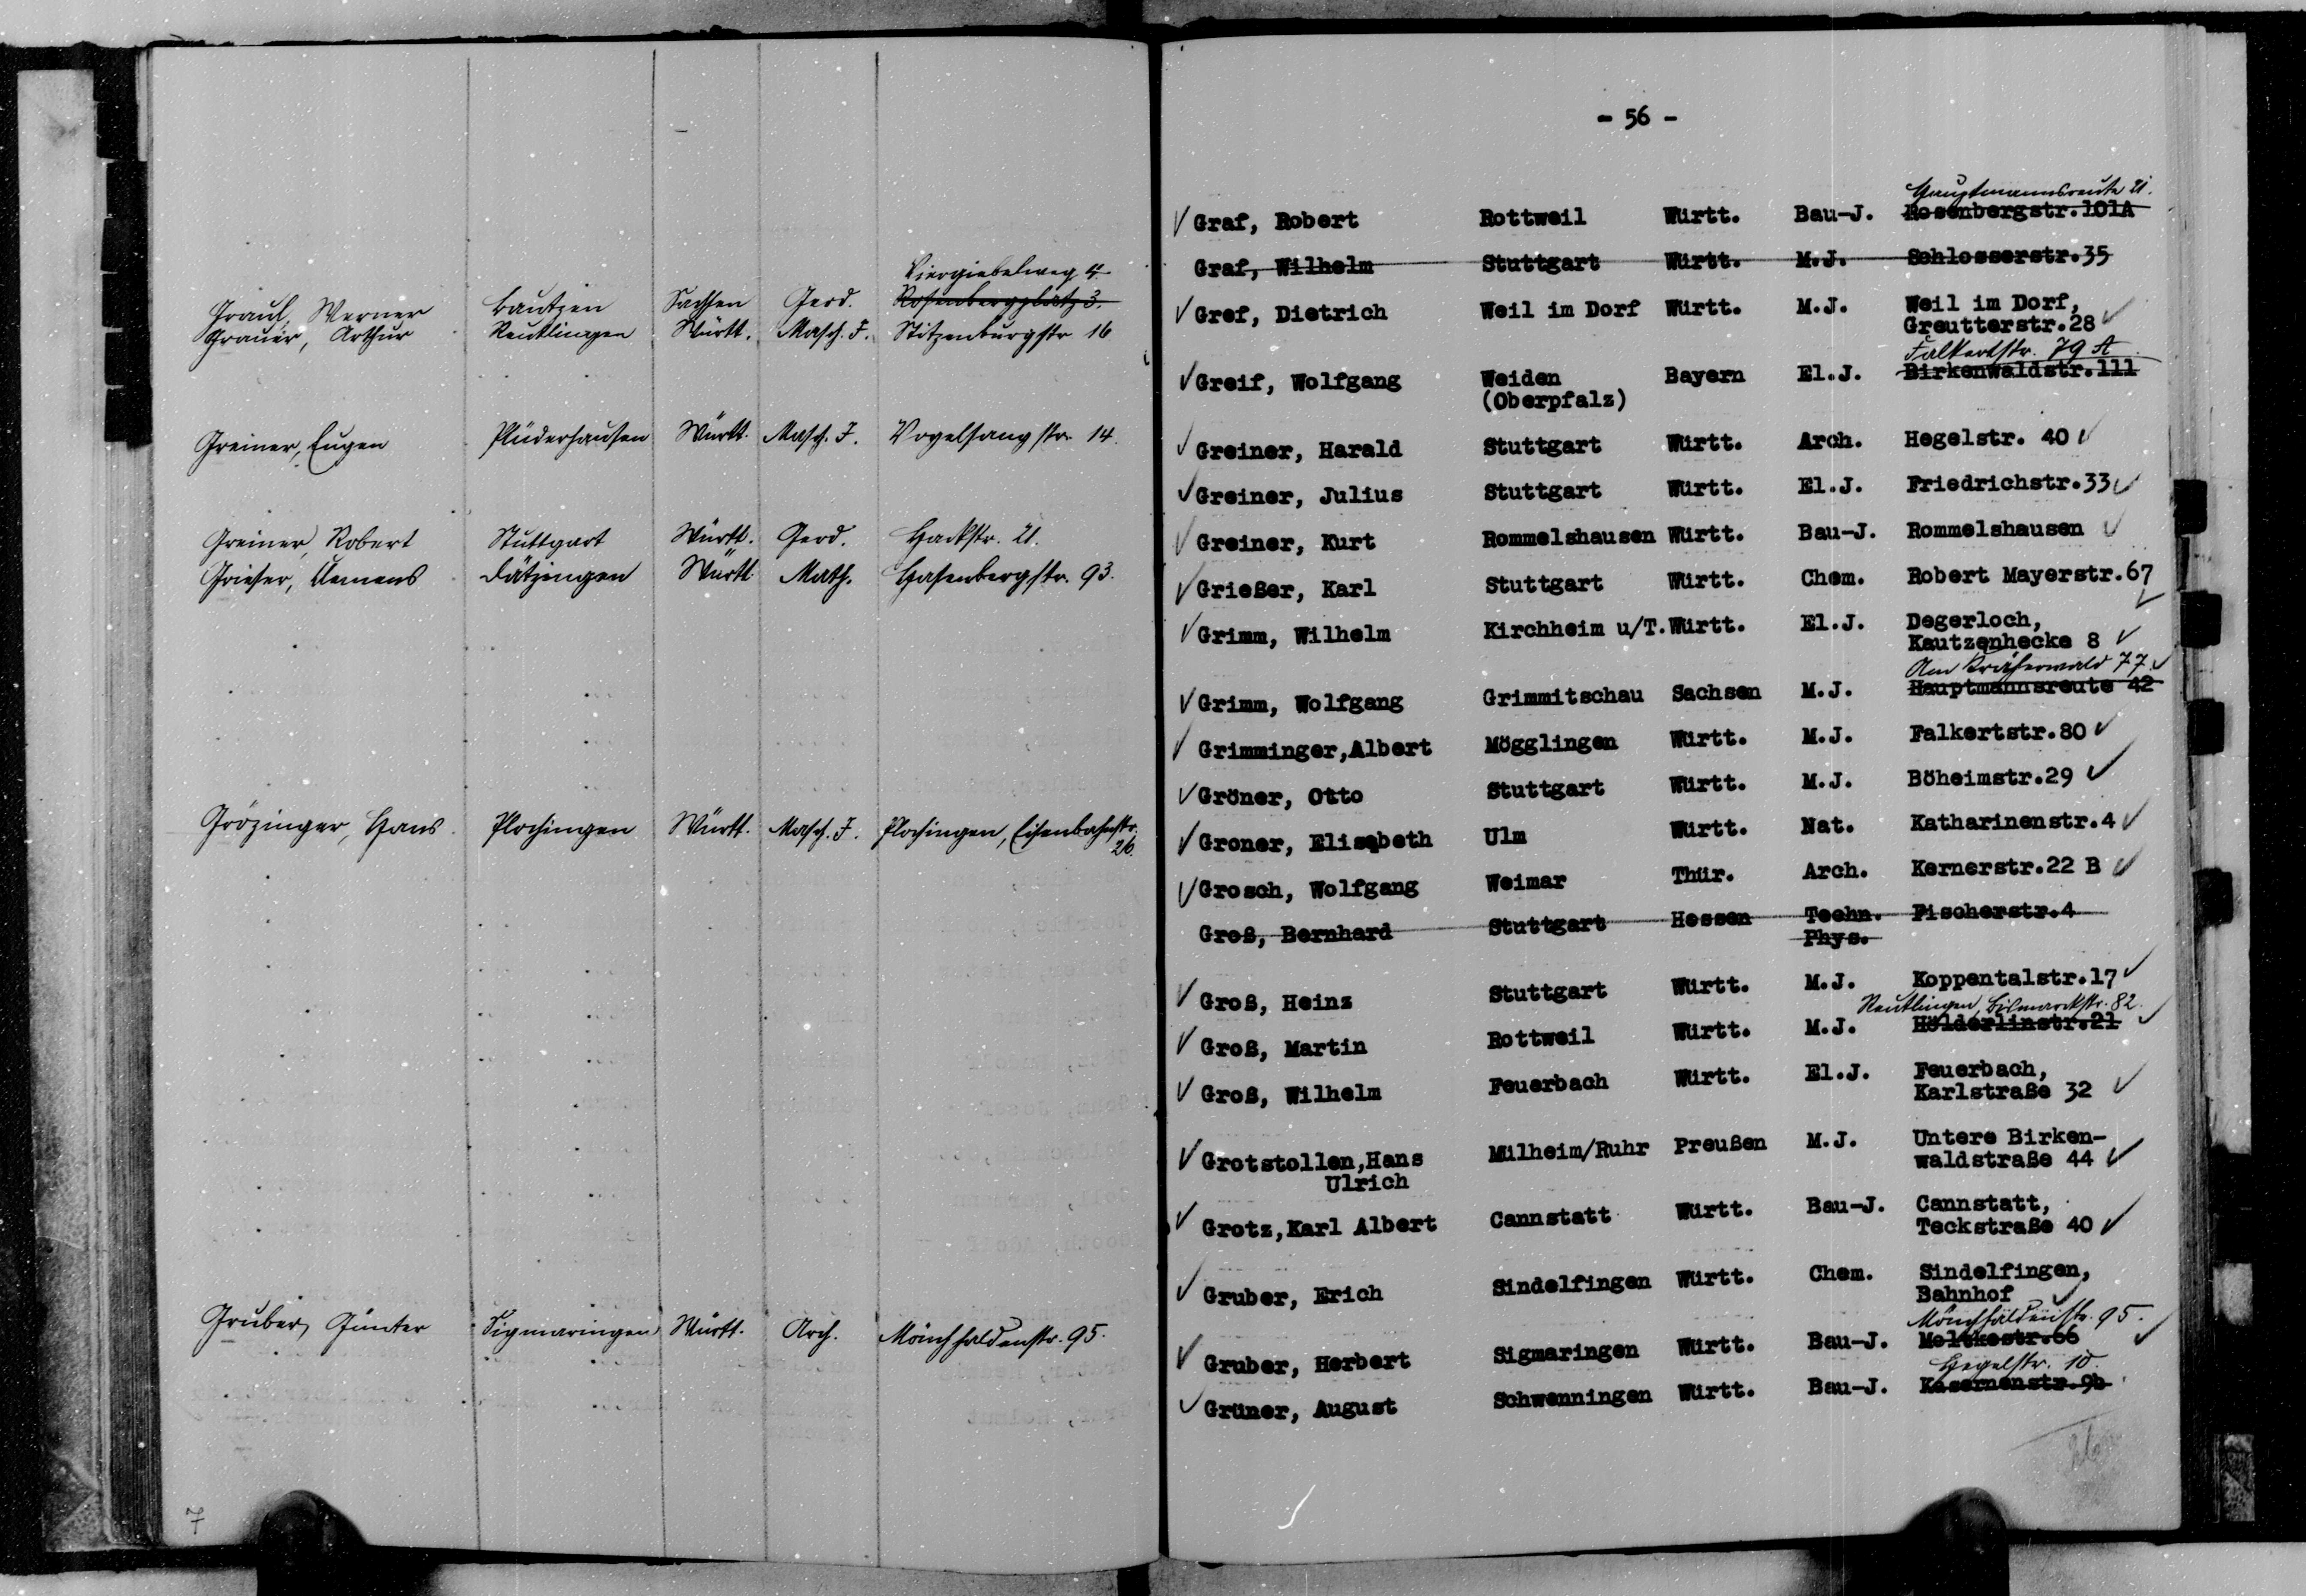 Viergiebelweg 4
Graul, Werner Bautzen Sachsen Geod. Rosenbergplatz 3.
Grauer, Arthur Reutlingen Württ. Masch. J. Stitzenburgstr. 16
Greiner, Eugen Plüderhausen Württ. Masch. J. Vogelsangstr. 14.
Greiner, Robert Stuttgart Württ. Geod. Hackstr. 21.
Grieser, Clemens Dätzingen Württ. Math. Hasenbergstr. 93.
Grözinger, Hans Plochingen Württ. Masch. J. Plochingen, Eisenbahnstr.
26.
Gruber, Günter Sigmaringen Württ. Arch. Mönchhaldenstr. 95.
7
- 56 -
Hauptmannsreute 21.
Graf, Robert Rottweil Württ. Bau-J. Rosenbergstr.101A
Graf, Wilhelm Stuttgart Württ. M.J. Schlosserstr.35
Gref, Dietrich Weil im Dorf Württ. M.J. Weil im Dorf,
Greutterstr.28
Falkertstr. 79 A
Greif, Wolfgang Weiden Bayern El.J. Birkenwaldstr.111
(Oberpfalz)
Greiner, Harald Stuttgart Württ. Arch. Hegelstr. 40
Greiner, Julius Stuttgart Württ. El.J. Friedrichstr.33
Greiner, Kurt Rommelshausen Württ. Bau-J. Rommelshausen
Grießer, Karl Stuttgart Württ. Chem. Robert Mayerstr.67
Grimm, Wilhelm Kirchheim u/T. Württ. El.J. Degerloch,
Kautzenhecke 8
Am Kräherwald 77.
Grimm, Wolfgang Grimmitschau Sachsen M.J. Hauptmannsreute 42
Grimminger,Albert Mögglingen Württ. M.J. Falkertstr.80
Gröner, Otto Stuttgart Württ. M.J. Böheimstr.29
Groner, Elisabeth Ulm Württ. Nat. Katharinenstr.4
Grosch, Wolfgang Weimar Thür. Arch. Kernerstr.22 B
Groß, Bernhard Stuttgart Hessen Techn. Fischerstr.4
Phys.
Groß, Heinz Stuttgart Württ. M.J. Koppentalstr.17
Reutlingen, Bismarckstr. 82.
Groß, Martin Rottweil Württ. M.J. Hölderlinstr.21
Groß, Wilhelm Feuerbach Württ. El.J. Feuerbach,
Karlstraße 32
Grotstollen,Hans Milheim/Ruhr Preußen M.J. Untere Birken-
Ulrich waldstraße 44
Grotz,Karl Albert Cannstatt Württ. Bau-J. Cannstatt,
Teckstraße 40
Gruber, Erich Sindelfingen Württ. Chem. Sindelfingen,
Bahnhof
Mönchhaldenstr. 95.
Gruber, Herbert Sigmaringen Württ. Bau-J. Moltkestr.66
Hegelstr. 10.
Grüner, August Schwenningen Württ. Bau-J. Kasernenstr.9b